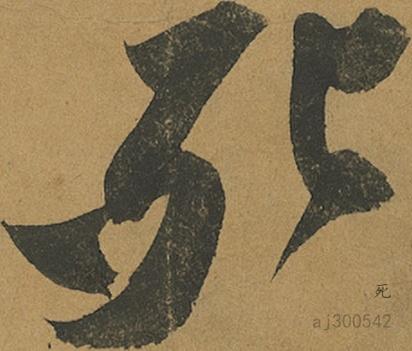 死
死
aj300542